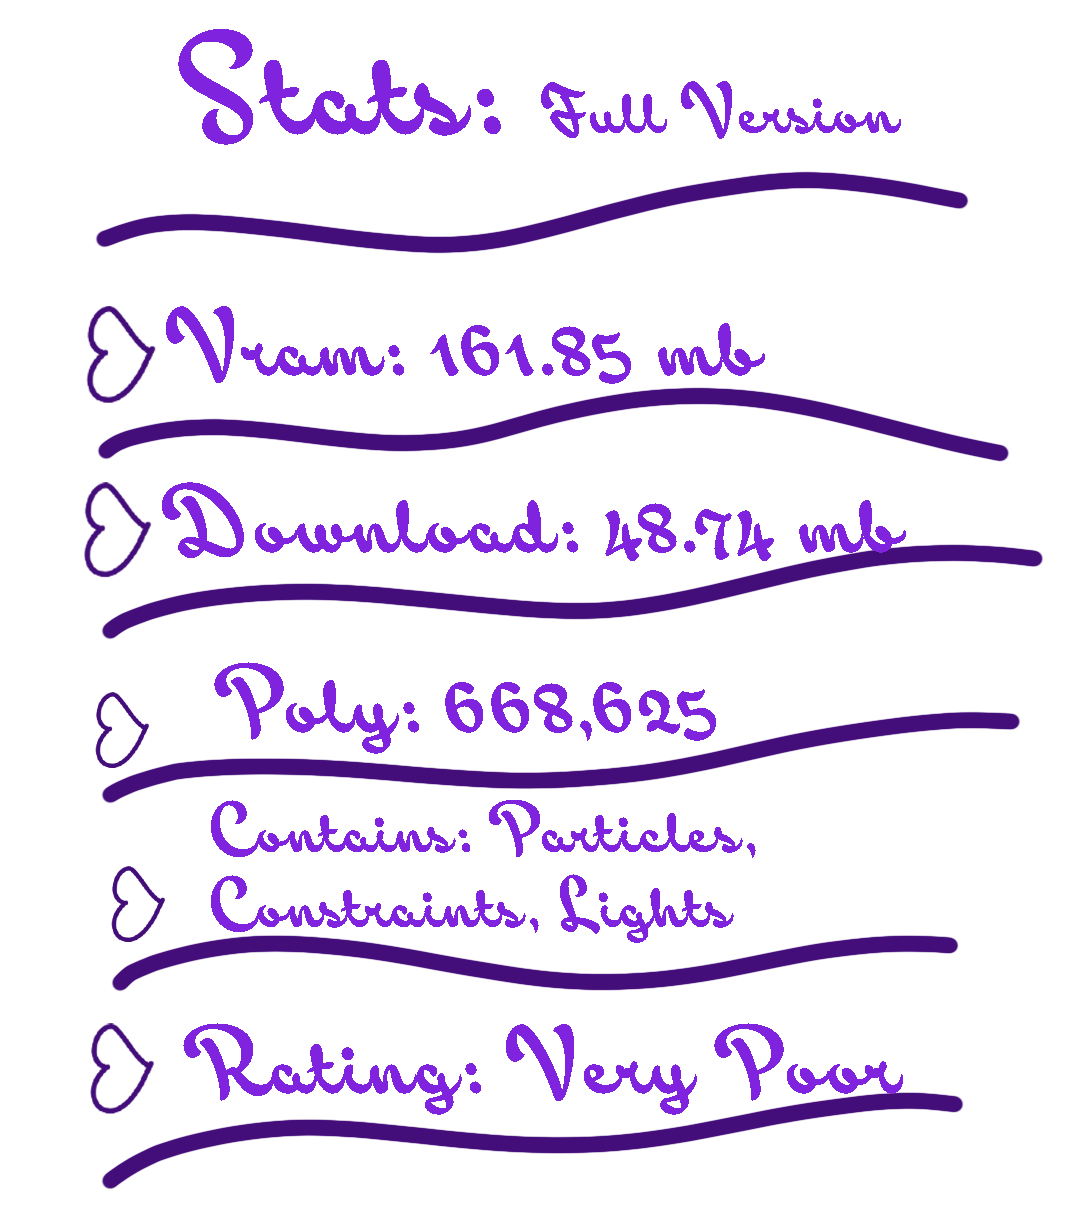 Stats: Full Version
Vram: 161.85 mb
Download: 48.74 mb
Poly: 668,625
Contains: Particles,
Constraints, Lights
Rating: Very Poor